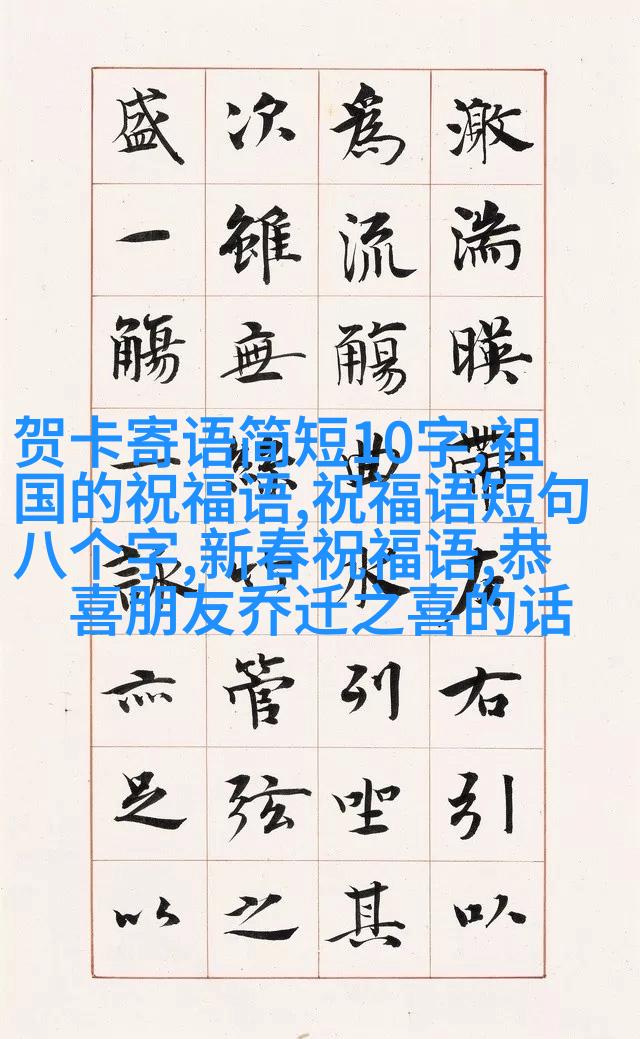 激湍暎帶左右引以
為流觴曲水列坐其
次雖無絲竹管弦之
盛一觴一詠亦足以
贺卡寄语简短10字,祖
国的祝福语,祝福语短句
八个字,新春祝福语,恭
喜朋友乔迁之喜的话